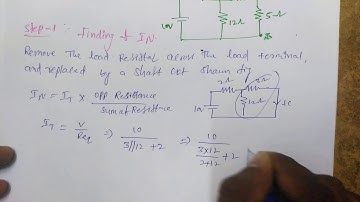 10V
12Ω
5Ω
B
Step-1 : Finding of IN.
Remove the load Resistor across the load terminal,
and replaced by a shaft CDT shown fig
IN = IT × opp Resistance / sum of Resistance
2Ω
10V
12Ω
IT = V/Req ⇒ 10 / 3||12 + 2 ⇒ 10 / 3×12/3+12 + 2